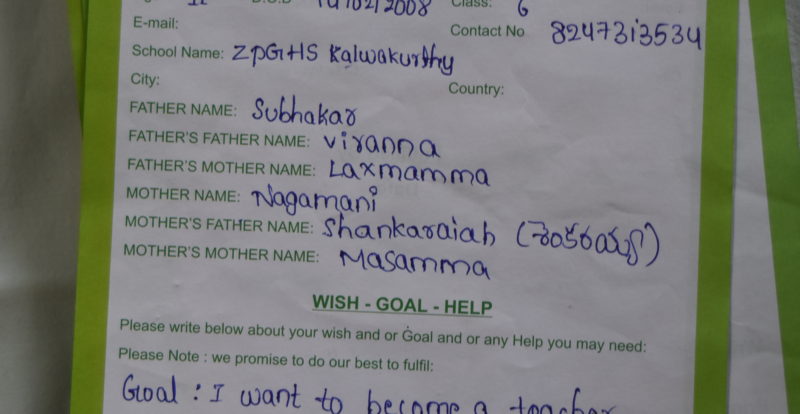 11 D.O.B 10/02/2008 Class: 6
E-mail: Contact No 8247313534
School Name: ZPGHS Kalwakurthy
City: Country:
FATHER NAME: Subhakar
FATHER'S FATHER NAME: Viranna
FATHER'S MOTHER NAME: Laxmamma
MOTHER NAME: Nagamani
MOTHER'S FATHER NAME: Shankaraiah (శంకరయ్య)
MOTHER'S MOTHER NAME: Masamma
WISH - GOAL - HELP
Please write below about your wish and or Goal and or any Help you may need:
Please Note : we promise to do our best to fulfil:
Goal : I want to become a teacher